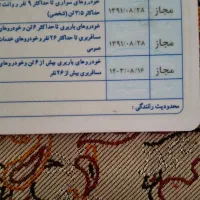 خودروهای سواری تا حداکثر ۹ نفر و وانت
حداکثر ۳/۵ تن (شخصی)
۱۳۹۱/۰۸/۲۸ مجاز
خودروهای باربری تا حداکثر ۶ تن و خودروهای
مسافربری تا حداکثر ۲۶ نفر و خودروهای خدمات
عمومی
۱۳۹۱/۰۸/۲۸ مجاز
خودروهای باربری بیش از ۶ تن و خودروهای
مسافربری بیش از ۲۶ نفر
۱۴۰۳/۰۸/۱۶ مجاز
محدودیت رانندگی :